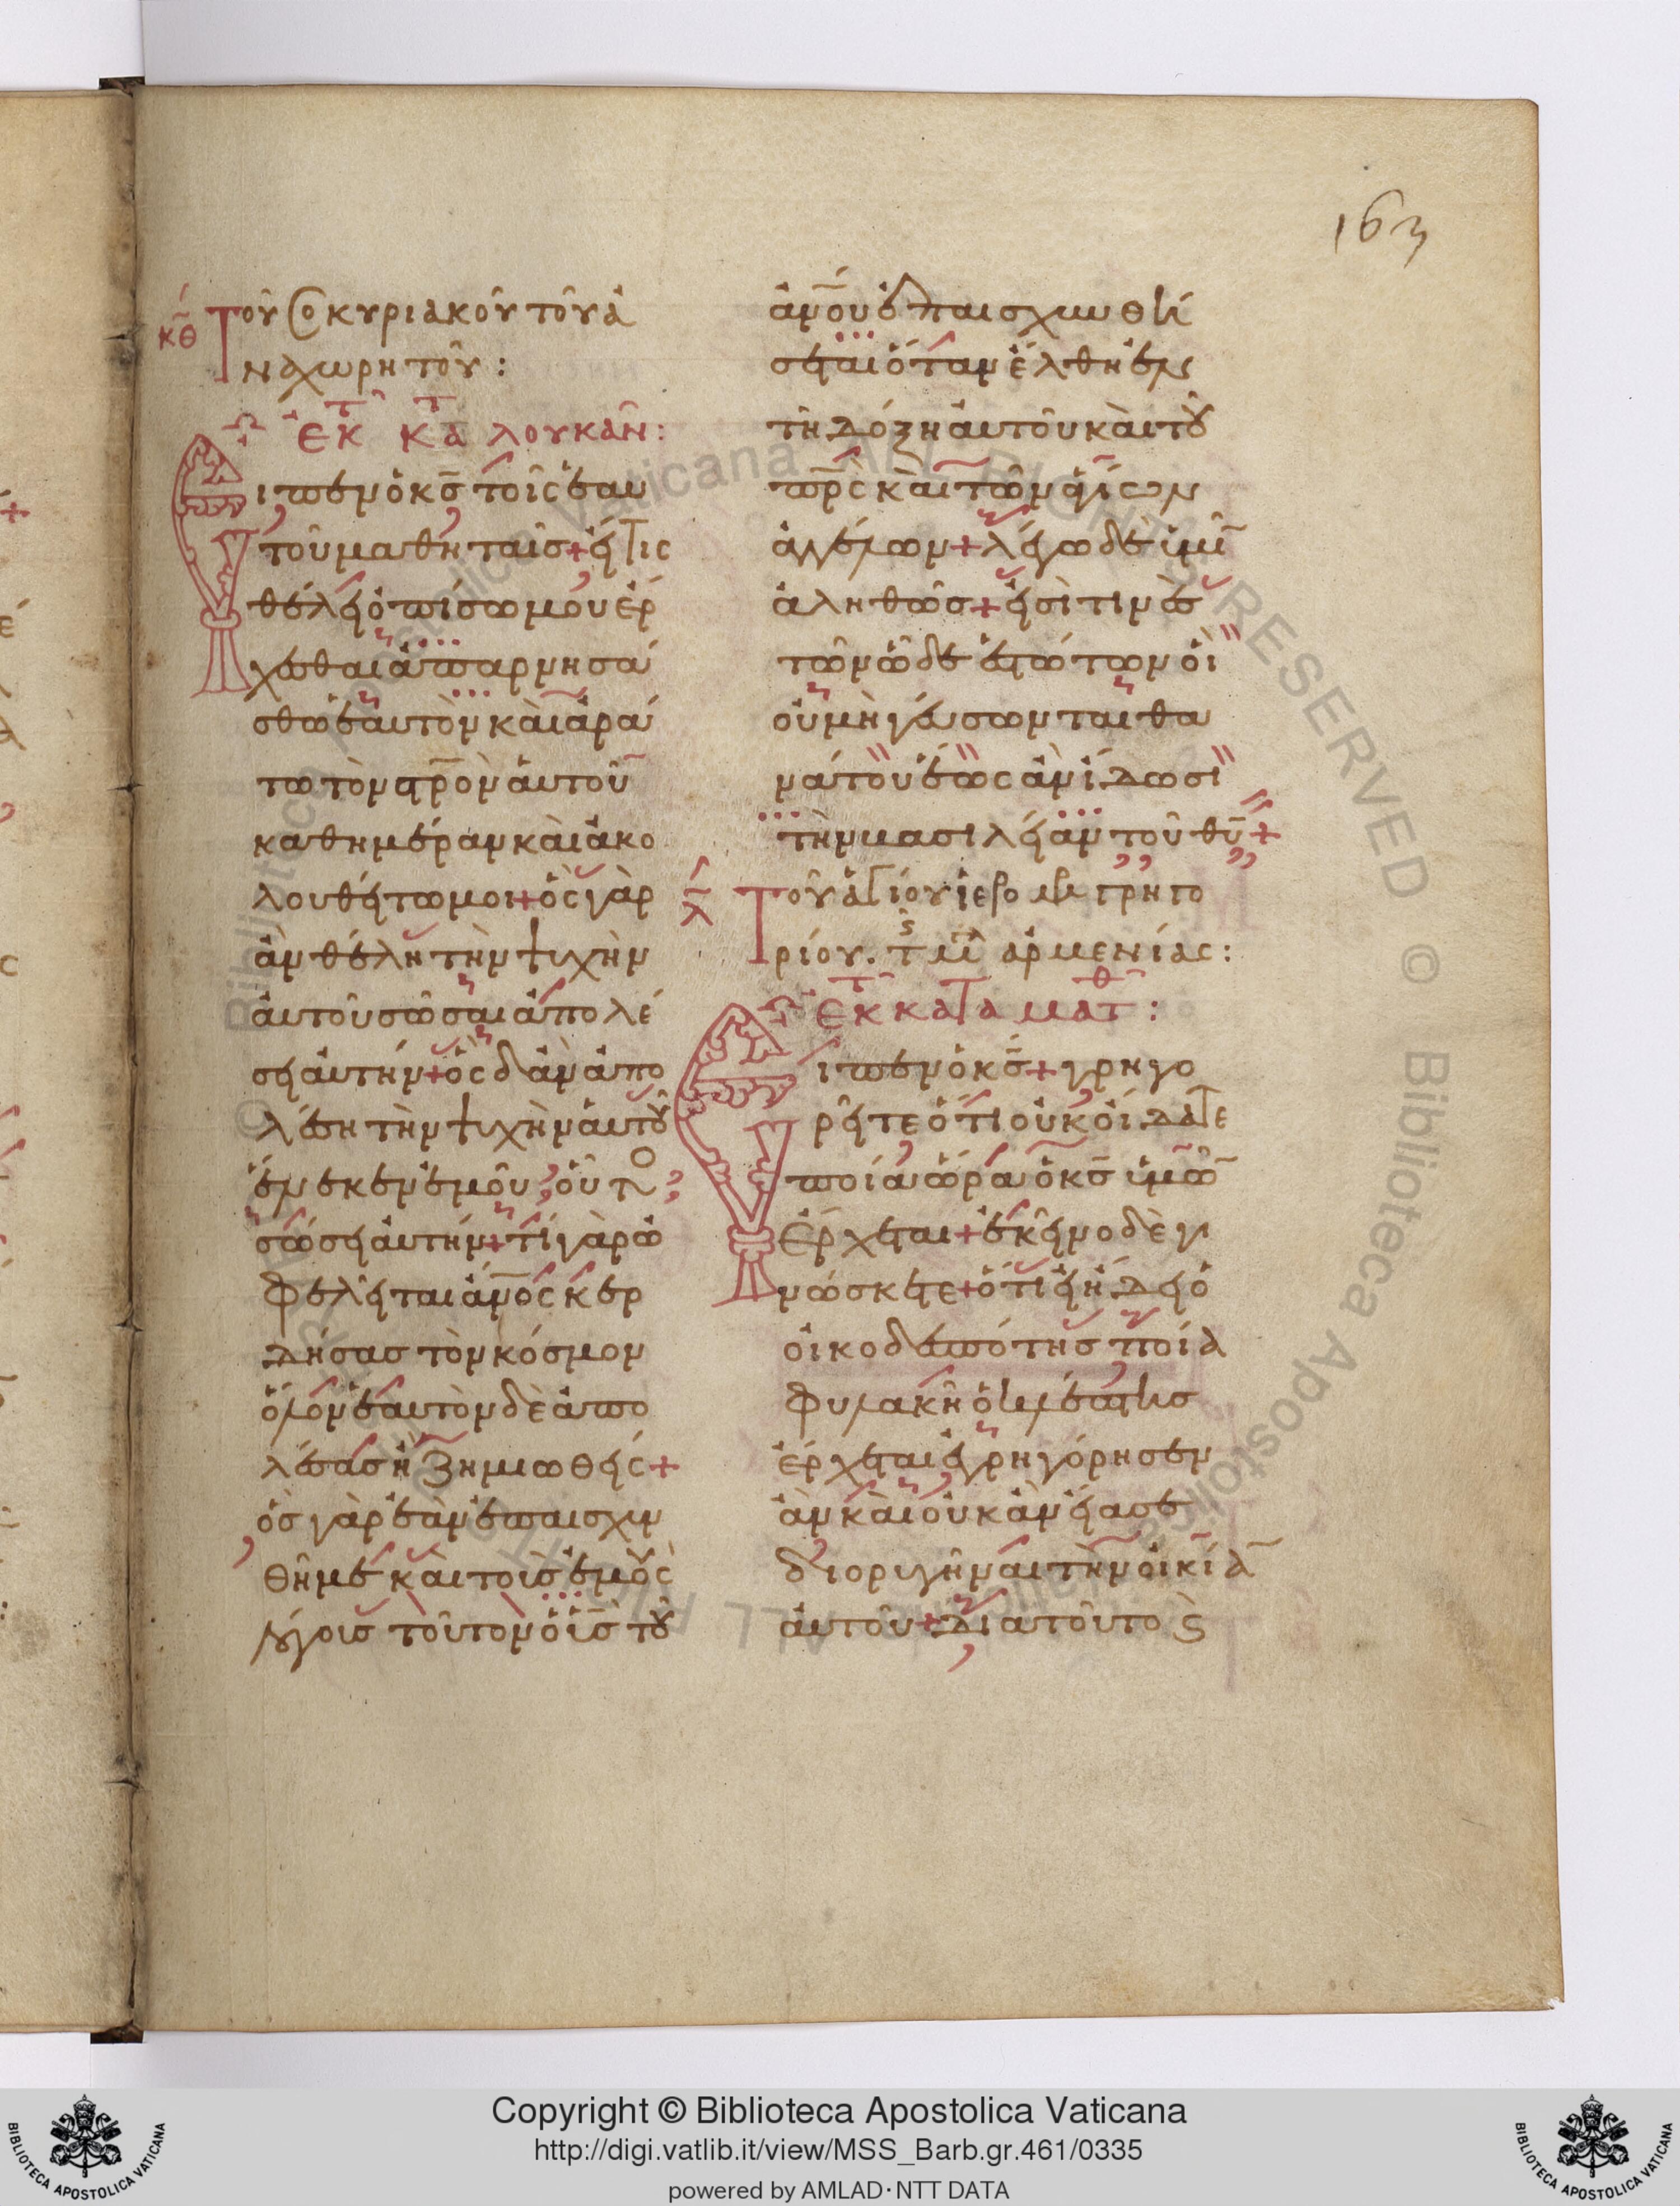 163
κθ Τοῦ ὁσ κυριακοῦ τοῦ ἀ
ναχωρητοῦ :
ἐκ τ κατ λουκᾶν :
Εἶπεν ὁ κς τοῖς ἑαυ
τοῦ μαθηταῖς + εἴ τις
θέλει ὀπίσω μου ἔρ
χεσθαι ἀπαρνησά
σθω ἑαυτὸν καὶ ἀρά
τω τὸν στρον αὐτοῦ
καθημέραν καὶ ἀκο
λουθείτω μοι + ὃς γὰρ
ἂν θέλη τὴν ψυχὴν
αὐτοῦ σῶσαι ἀπολέ
σει αὐτήν + ὃς δ ἂν ἀπο
λέση τὴν ψυχὴν αὐτοῦ
ἕνεκεν ἐμοῦ, οὗτος
σώσει αὐτήν + τί γὰρ ὠ
φελεῖται ἀνος κερ
δήσας τὸν κόσμον
ὅλον ἑαυτὸν δὲ ἀπο
λέσας ἢ ζημιωθείς +
ὃς γὰρ ἐὰν ἐπαισχυν
θῆ με καὶ τοὺς ἐμοὺς
λόγους τοῦτον ὁ υς τοῦ
ανου ἐπαισχυνθή
σεται ὅταν ἔλθη ἐν
τῆ δόξη αὐτοῦ καὶ τοῦ
πρς καὶ τῶν ἁγίων
ἀγγέλων + λέγω δὲ ὑμῖν
ἀληθῶς + εἰσί τινες
τῶν ὧδε ἑστώτων οἳ
οὐ μὴ γεύσωνται θα
νάτου ἕως ἂν ἴδωσι
τὴν βασιλείαν τοῦ θυ +
λ Τοῦ ἁγίου ἱερομ γρηγο
ρίου. τ μ ἀρμενίας :
ἐκ τ κατα ματθ :
Εἶπεν ὁ κς + γρηγο
ρεῖτε ὅτι οὐκ οἴδατε
ποία ὥρα ὁ κς ὑμῶν
ἔρχεται + ἐκεῖνο δὲ γι
νώσκετε + ὅτι εἰ ἤδει ὁ
οἰκοδεσπότης ποία
φυλακῆ ὁ κλέπτης
ἔρχεται ἐγρηγόρησεν
ἂν καὶ οὐκ ἂν εἴασε
διορυγῆναι τὴν οἰκίαν
αὐτοῦ + διὰ τοῦτο ϛ
© Biblioteca Apostolica Vaticana ALL RIGHTS RESERVED © Biblioteca Apostolica
Copyright © Biblioteca Apostolica Vaticana
http://digi.vatlib.it/view/MSS_Barb.gr.461/0335
powered by AMLAD·NTT DATA
BIBLIOTECA APOSTOLICA VATICANA
BIBLIOTECA APOSTOLICA VATICANA